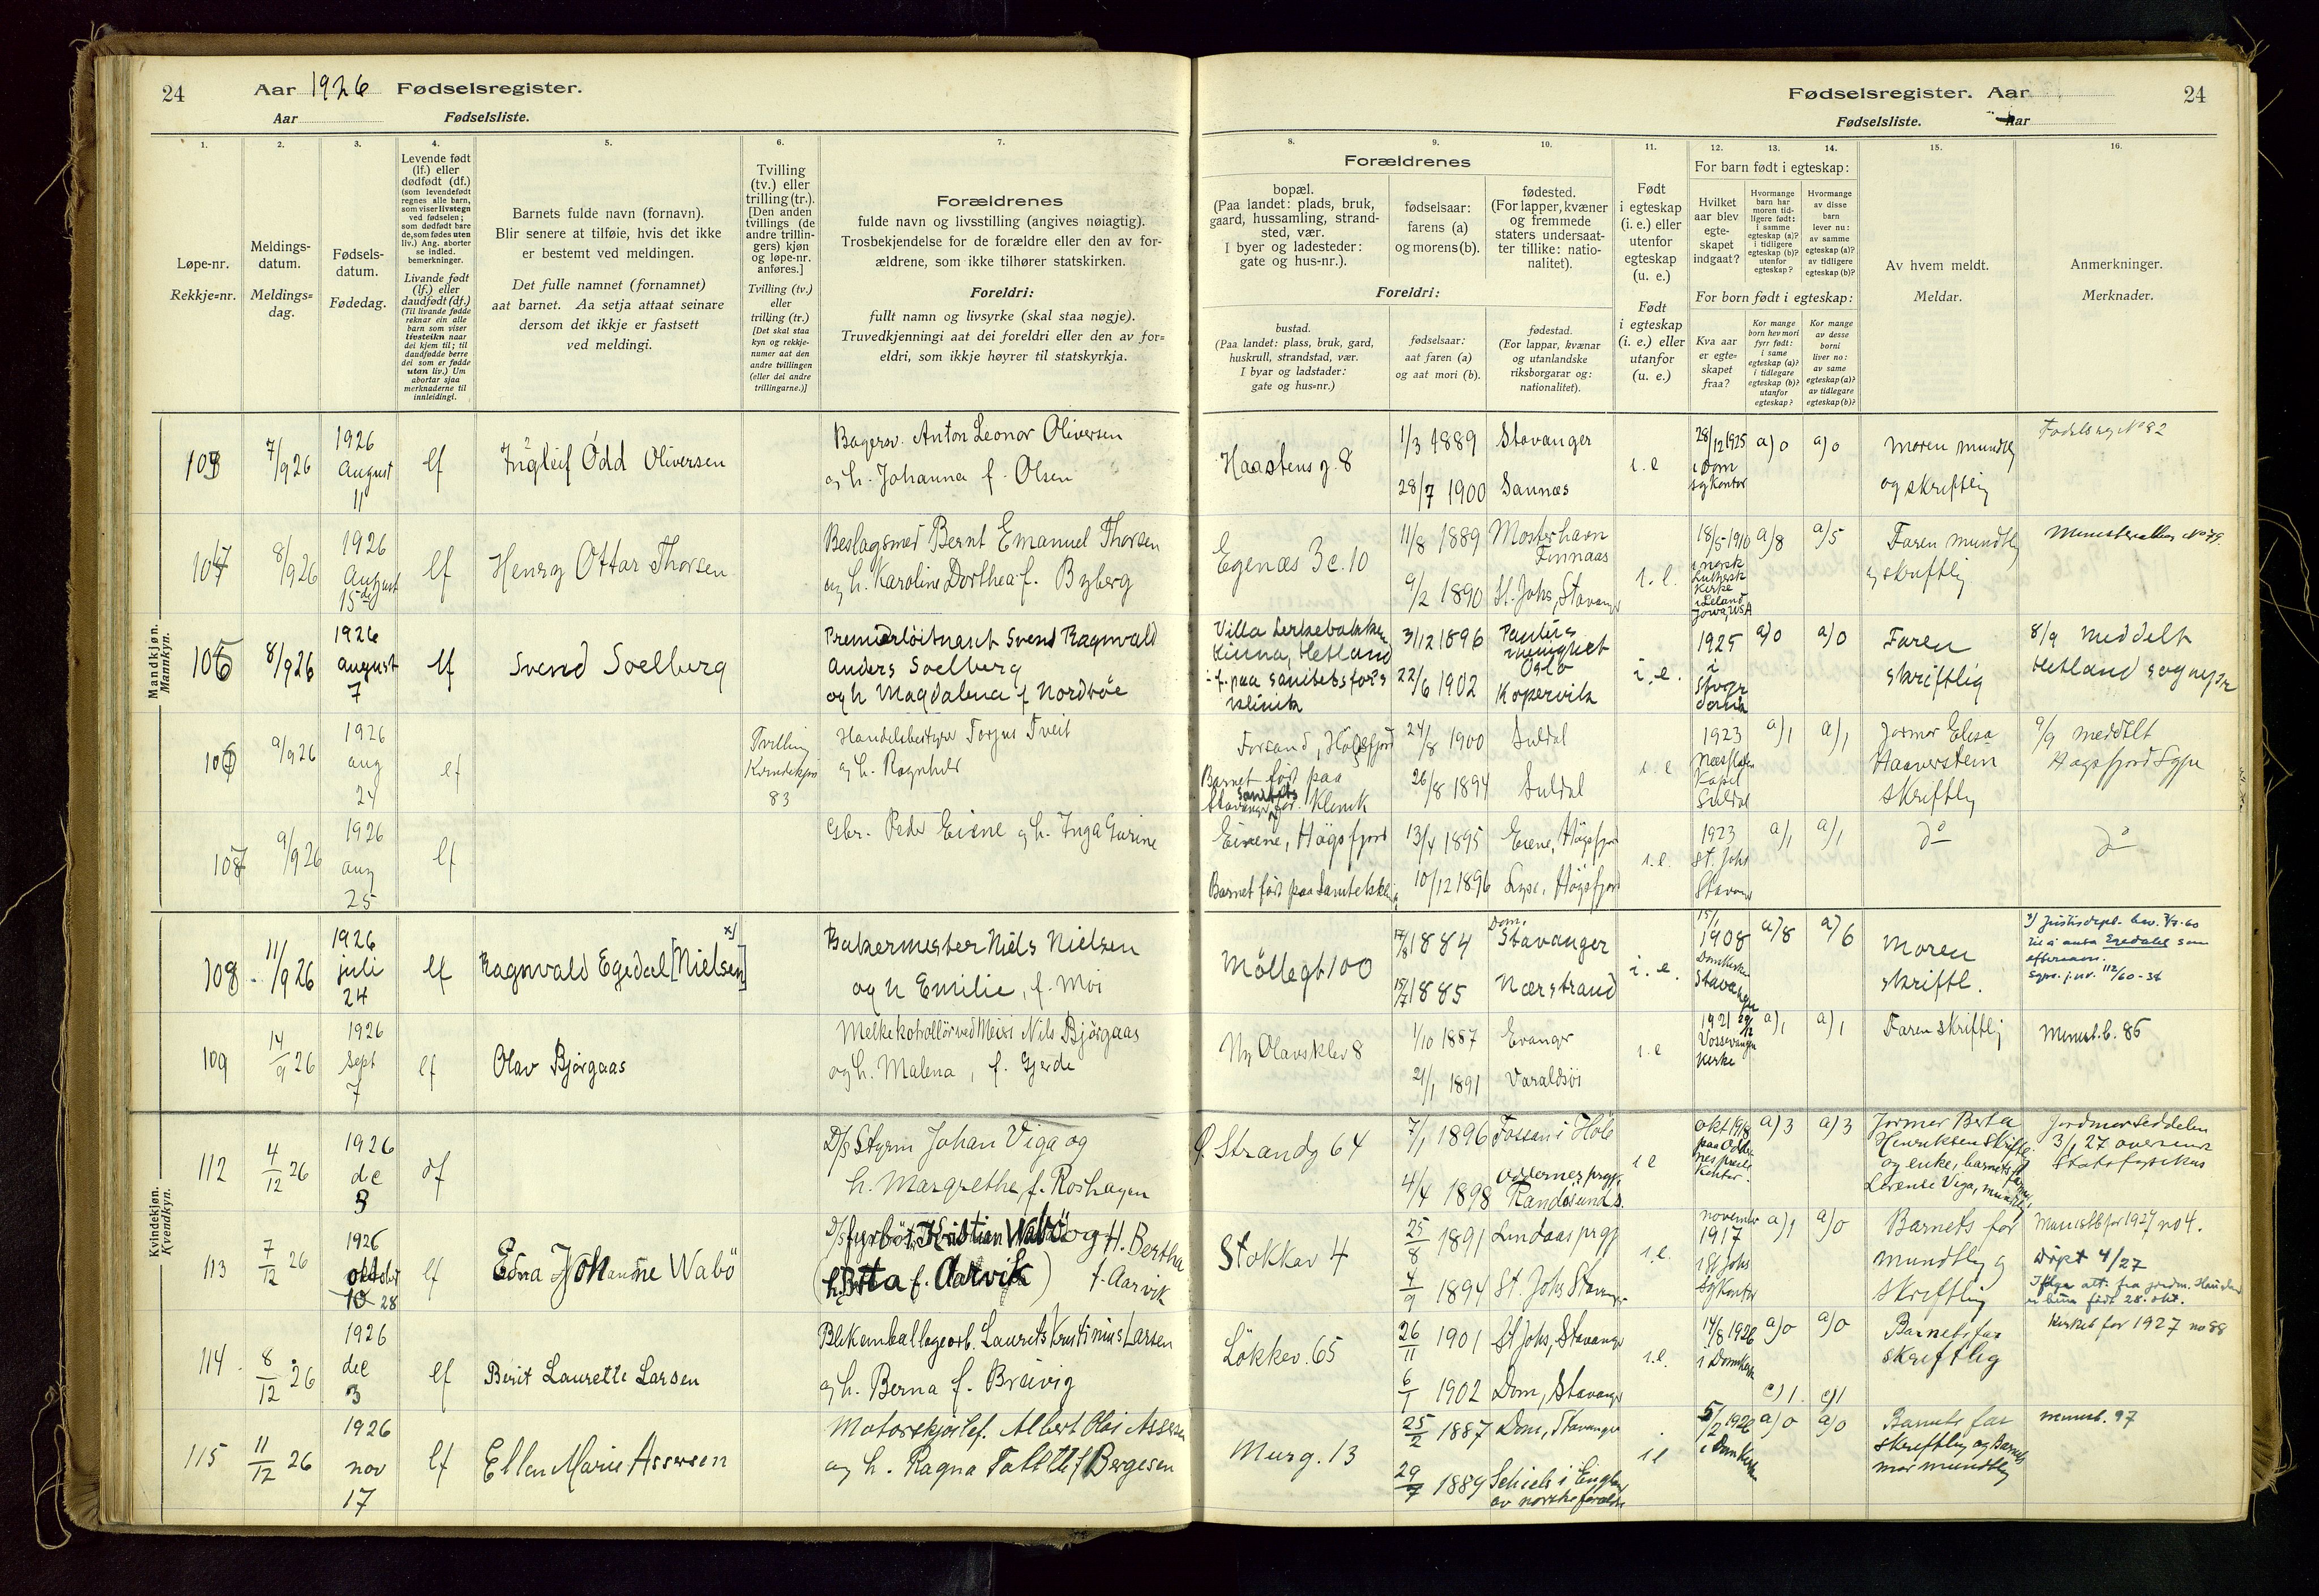 24 Aar 1926 Fødselsregister.
Aar Fødselsliste.
Fødselsregister. Aar 24
Fødselsliste. Aar
1. 2. 3. 4. 5. 6. 7.
8. 9. 10. 11. 12. 13. 14. 15. 16.
Løpe-nr.
Rekkje=nr.
Meldings-
datum.
Meldings=
dag.
Fødsels-
datum.
Fødedag.
Levende født
(lf.) eller
dødfødt (df.)
(som levendefødt
regnes alle barn,
som viser livstegn
ved fødselen;
som dødfødt bare
de, som fødes uten
liv.) Ang. aborter
se indled.
bemerkninger.
Livande født
(lf.) eller
daudfødt (df.)
(Til livande fødde
reknar ein alle
barn som viser
livsteikn naar
dei kjem til; til
daudfødde berre
dei som er fødde
utan liv.) Um
abortar sjaa
merknaderne til
innleidingi.
Barnets fulde navn (fornavn).
Blir senere at tilføie, hvis det ikke
er bestemt ved meldingen.
Det fulle namnet (fornamnet)
aat barnet. Aa setja attaat seinare
dersom det ikkje er fastsett
ved meldingi.
Tvilling
(tv.) eller
trilling (tr.).
[Den anden
tvillings (de
andre trillin-
gers) kjøn
og løpe-nr.
anføres.]
Tvilling (tv.)
eller
trilling (tr.)
[Det skal staa
kyn og rekkje-
numer aat den
andre tvillingen
(eller dei andre
trillingarne.)]
Forældrenes
fulde navn og livsstilling (angives nøiagtig).
Trosbekjendelse for de forældre eller den av for-
ældrene, som ikke tilhører statskirken.
Foreldri:
fullt namn og livsyrke (skal staa nøgje).
Truvedkjenningi aat dei foreldri eller den av for=
eldri, som ikkje høyrer til statskyrkja.
Forældrenes
bopæl.
(Paa landet: plads, bruk,
gaard, hussamling, strand-
sted, vær.
I byer og ladesteder:
gate og hus-nr.).
fødselsaar:
farens (a)
og morens (b).
fødested.
(For lapper, kvæner
og fremmede
staters undersaat-
ter tillike: natio-
nalitet).
Foreldri:
bustad.
(Paa landet: plass, bruk, gard,
huskrull, strandstad, vær.
I byar og ladstader:
gate og hus=nr.)
fødselsaar:
aat faren (a)
og aat mori (b).
fødestad.
(For lappar, kvænar
og utanlandske
riksborgarar og:
nationalitet).
Født
i egteskap
(i. e.) eller
utenfor
egteskap
(u. e.)
Født
i egteskap
(i. e.) eller
utanfor
(u. e.)
For barn født i egteskap:
Hvilket
aar blev
egte-
skapet
indgaat?
Hvormange
barn har
moren tid-
ligere født:
i samme
egteskap (a)?
i tidligere
egteskap (b)?
utenfor
egteskap?
Hvormange
av disse
barn
lever nu:
av samme
egteskap (a)?
av tidligere
egteskap (b)?
For born født i egteskap:
Kva aar
er egte=
skapet
fraa?
Kor mange
born hev mori
fyrr født:
i same
egteskap (a)?
i tidlegare
egteskap (b)?
utanfor
egteskap?
Kor mange
av desse
borni
liver no:
av same
egteskap (a)?
av tidlegare
egteskap (b)?
Av hvem meldt.
Meldar.
Anmerkninger.
Merknader.
Mandkjøn.
Mannkyn.
103 7/9 26 1926 August 11 lf Ingleif Odd Oliversen
Bagersv. Anton Leonor Oliversen
og h. Johanna f. Olsen
Haastens g. 8 1/3 1889 Stavanger
28/7 1900 Sannæs
i. e 28/12 1925 i Dom sgkontor a) 0 a) 0
Moren mundtlig
og skriftlig
Fødselsreg No 82
104 8/9 26 1926 August 15de lf Henry Ottar Thorsen
Beslagsmed Bernt Emanuel Thorsen
og h. Karoline Dorthea f. Byberg
Egenæs 3e. 10 11/8 1889 Mosterhavn Finnaas
9/2 1890 St. Johs, Stavanger
i. e. 18/5 1910 i norsk Luthersk Kirke i Leland Jowa, USA a) 8 a) 5
Faren mundtlig
og skriftlig
Ministerialbog No 79.
105 8/9 26 1926 august 7 lf Svend Soelberg
Premierløitnant Svend Ragnvald
Anders Soelberg
og h Magdalena f Nordbøe
Villa Lerkebakken
Kinna, Hetland
f. paa sanitetsfor's
klinik
31/12 1896 Paulus menighet Oslo
22/6 1902 Kopervik
i. e. 1925 i Svgr domk a) 0 a) 0
Faren
skriftlig
8/9 meddelt
Hetland sognepr
106 9/9 26 1926 aug 24 lf
Tvilling
Kvindekjøn
83
Handelsbestyrer Torjus Tveit
og h. Ragnhild
Forsand, Høgsfjord
Barnet født paa
Stavanger sanitets for. Klinik
24/8 1900 Suldal
26/8 1894 Suldal
i. e 1923 Næsflaten Kapel Suldal a) 1 a) 1
Jormor Elisa
Haaverstein
skriftlig
9/9 meddelt
Høgsfjord Sgpr
107 9/9 26 1926 aug 25 lf
Gbr. Peder Eiene og h. Inga Gurine
Eiene, Högsfjord 13/4 1895 Eiene, Högsfjor
Barnet født paa Sanitetsklin 10/12 1896 Lyse, Högsfjord
i. e. 1923 St. Johs Stavanger a) 1 a) 1
do
do
108 11/9 26 1926 juli 24 lf Ragnvald Egedal [Nielsen] x)
Bakermester Niels Nielsen
og h Emilie, f. Moi
Möllegt 100 1884 Dom. Stavanger
1885 Nærstrand
i. e. 15/1 1908 Domkirken Stavanger a) 8 a) 6
Moren
skriftl.
x) Justisdept. bev.
til å anta Egedal som
efternavn.
Sgpr. j. nr. 112/60-36
109 14/9 26 1926 Sept 7 lf Olav Bjørgaas
Melkekotrollör ved Meieri Nils Bjørgaas
og h. Malena, f. Gjerde
Ny Olavskleiv 8 1/10 1887 Evanger
21/1 1891 Varaldsöi
i. e 1921 Vossevangen Kirke a) 1 a) 1
Faren skriftlig
Minist. b. 86
Kvindekjøn.
Kvendkyn.
112 4/12 26 1926 de 3 df
D/s Styrm Johan Viga og
h. Margrethe, f. Roshagen
Ø. Strandg 64 7/1 1896 Fossan i Höle
4/4 1898 Oddernes prgj. Randösunds.
i e okt 1918 paa Oddernes prests Kontor. a) 3 a) 3
Jormor Berta
Henriksen skriftl.
og enke, barnets farmor,
Lerende Viga, mundtl
Jordmorseddelen
3/1 27 oversendt
Statsfysikus
113 7/12 26 1926 oktober 10 28 lf Edna Johanne Wabö
D/s fyrböter Kristian Wabö og H. Bertha
(h. Berta f. Aarvik) f. Aarvik
Stokkav 4 25/8 1891 Lindaas prgj
4/9 1894 St. Johs Stavanger
i. e. november 1917 i St Johs sgkontor a) 1 a) 0
Barnets far
mundtlig og
skriftlig
Ministb for 1927 no 4.
Döpt 4/27
Ifölge att. fra jordm.
er barnet födt 28. okt.
114 8/12 26 1926 dec 3 lf Berit Laurette Larsen
Blikemballagearb. Laurits Kristinius Larsen
og h. Berna f. Breivig
Løkkev. 65 26/11 1901 St Johs, Stavanger
6/1 1902 Dom, Stavanger
i. e. 14/8 1926 i Domkirken a) 0 a) 0
c) 1. c) 1
Barnets far
skriftlig
Kirkeb for 1927 no 88
115 11/12 26 1926 nov 17 lf Ellen Marie Assersen
Motorskjøitef. Albert Olai Assersen
og h. Ragna f Bergesen
Murg. 13 25/2 1887 Dom, Stavanger
29/7 1889 Schiels i England
av norske forældre
i e 5/2 1926 i Domkirken a) 0 a) 0
Barnets far
skriftlig og Barnets
mor mundtlig
minist. 97